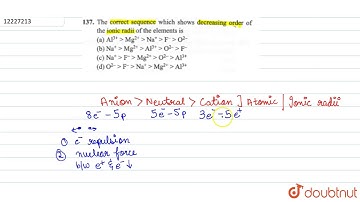 12227213
137. The correct sequence which shows decreasing order of
the ionic radii of the elements is
(a) Al³⁺ > Mg²⁺ > Na⁺ > F⁻ > O²⁻
(b) Na⁺ > Mg²⁺ > Al³⁺ > O²⁻ > F⁻
(c) Na⁺ > F⁻ > Mg²⁺ > O²⁻ > Al³⁺
(d) O²⁻ > F⁻ > Na⁺ > Mg²⁺ > Al³⁺
Anion > Neutral > Cation ] Atomic | Ionic radii
8e⁻ - 5p 5e⁻ - 5p 3e⁻ - 5e⁺
① e⁻ repulsion
② nuclear force
b/w e⁺ & e⁻ ↓
doubtnut